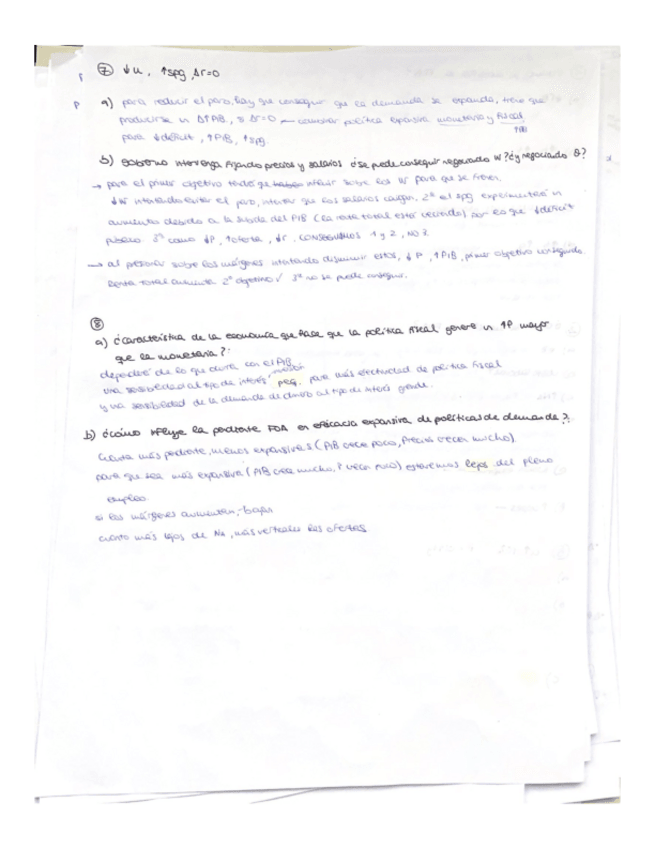 ⑦ ↓u, ↑spg, Δr=0
a) para reducir el paro, hay que conseguir que la demanda se expanda, tiene que
producirse un Δ↑PIB, si Δr=0 → combinar política expansiva monetaria y fiscal
↑PIB
para ↓déficit, ↑PIB, ↑spg.
b) Gobierno interviene fijando precios y salarios ¿se puede conseguir negociando W? ¿y negociando θ?
→ para el primer objetivo tendrá que influir sobre los W para que se frenen.
↓W intentando evitar el paro, intentar que los salarios caigan, 2º el spg experimenta un
aumento debido a la subida del PIB (la renta total está creciendo) por lo que ↓déficit
público 3º como ↓P, ↑oferta, ↓r. CONSEGUIMOS 1 y 2, NO 3.
→ al presionar sobre los márgenes intentando disminuir estos, ↓P, ↑PIB, primer objetivo conseguido.
Renta total aumenta 2º objetivo ✓ 3º no se puede conseguir.
⑧
a) ¿característica de la economía que hace que la política fiscal genere un ↑P mayor
que la monetaria?
dependerá de lo que ocurra con el PIB
una sensibilidad al tipo de interés peq. para más efectividad de política fiscal
y una sensibilidad de la demanda de dinero al tipo de interés grande.
b) ¿cómo influye la pendiente FOA en eficacia expansiva de políticas de demanda?
Cuanta más pendiente, menos expansivas (PIB crece poco, Precios crecen mucho)
para que sea más expansiva (PIB crece mucho, P crecen poco) estaremos lejos del pleno
empleo
si los márgenes aumentan, bajan
cuanto más lejos de Na, más verticales las ofertas